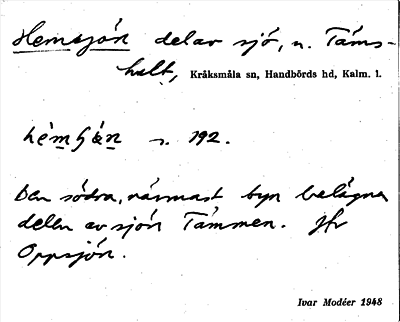 Hemsjön del av sjö, n. Täms-
hult, Kråksmåla sn, Handbörds hd, Kalm. l.
hémʃö̀n s. 192.
Den södra, närmast byn belägna
delen av sjön Tämmen. Jfr
Oppsjön.
Ivar Modéer 1948